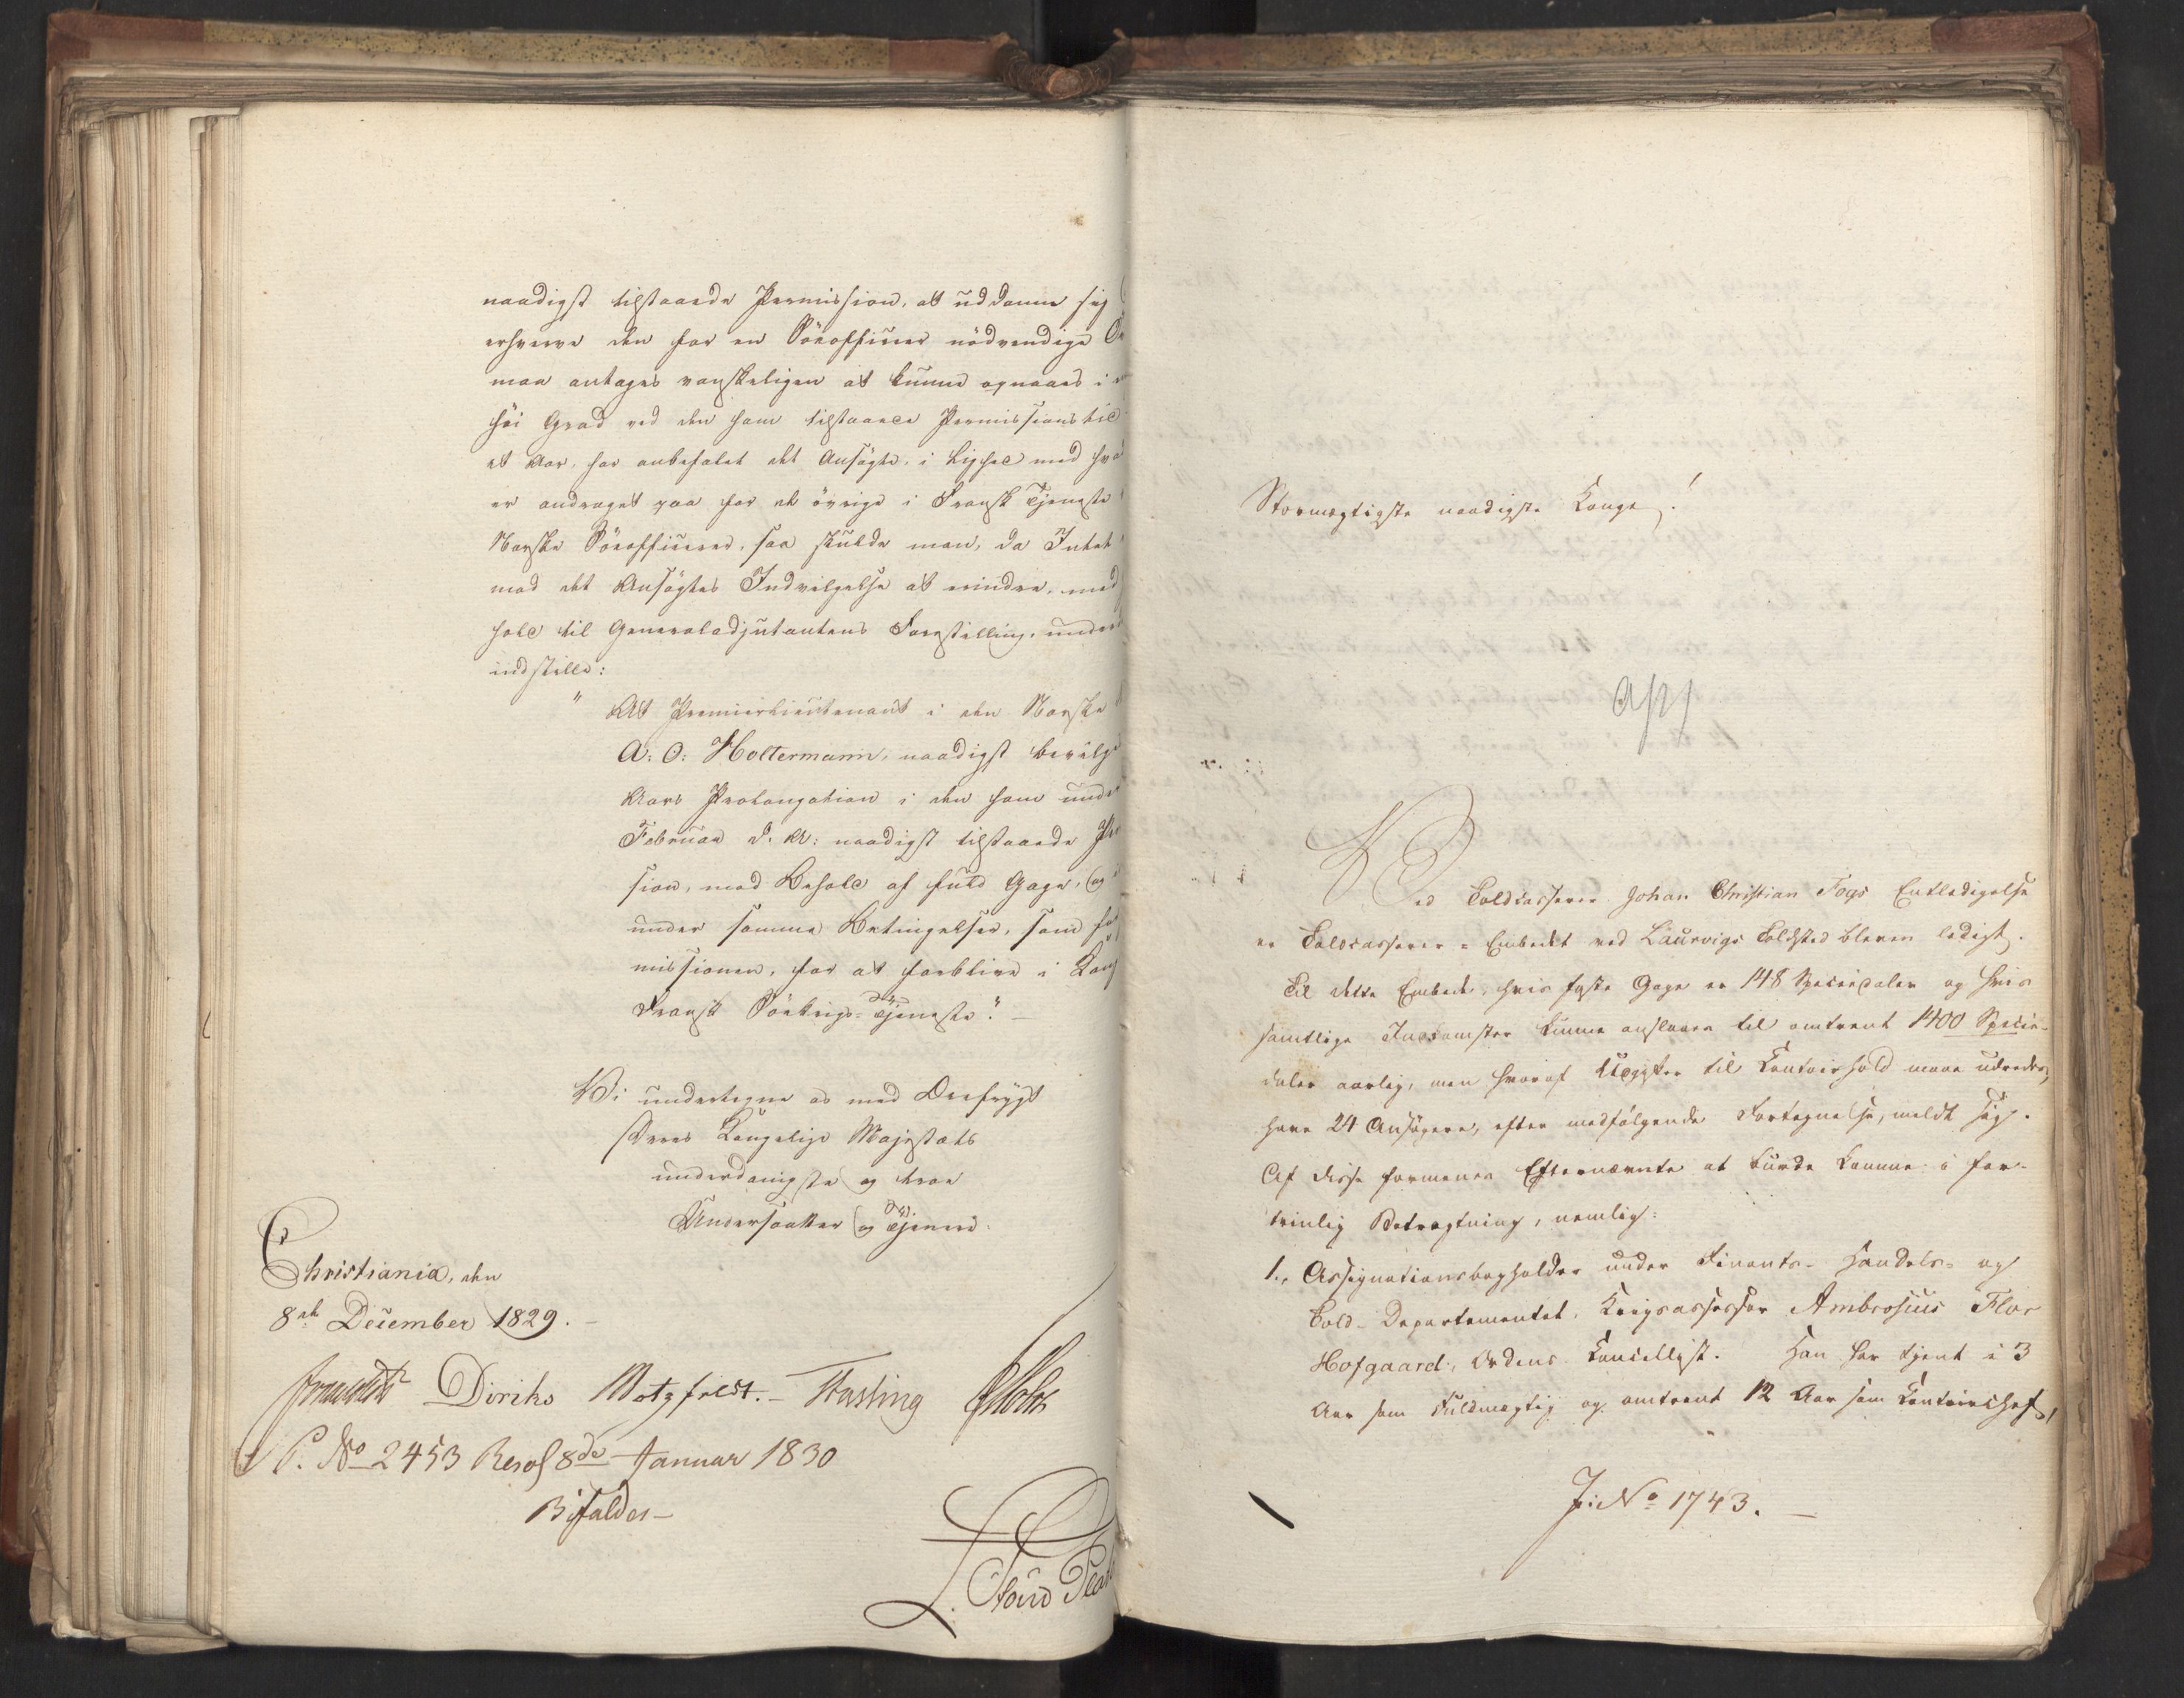 naadigst tilstaaede Permission, at uddanne sig
erhverve den for en Söeofficeer nödvendige
maa antages vanskeligen at kunne opnaaes i
höi Grad ved den ham tilstaaede Permissionstid
et Aar, har anbefalet det Ansögte, i Lighed med hva
er andraget paa for de övrige i Fransk Tjeneste
Norske Söeofficerer, saa skulde man, da Intet
mod det Ansögtes Indvilgelse at erindre, med
hold til Generaladjutantens Forestilling, underd
indstille:
" At Premierlieutenant i den Norske
A: O: Holtermann, naadigst bevilge
Aars Prolongation i den ham under
Februar d. A: naadigst tilstaaede Per
sion, med Behold af fuld Gage, og
under samme Betingelser, som for
missionen, for at forblive i Kong
Fransk Söekrigs-Tjeneste". —
Vi undertegne os med Dybfrygt
Deres Kongelige Majestæts
underdanigste og troe
Undersaatter og Tjenere.
Christiania, den
8de December 1829. —
Diriks Motzfeldt. — Fasting Holst
P. No 2453 Resol 8de Januar 1830
Bifaldes —
Stormægtigste naadigste Konge!
Ved Toldkasserer Johan Christian Fogs Entledigelse
er Toldkasserer-Embedet ved Laurvigs Toldsted bleven ledigt.
Til dette Embede, hvis faste Gage er 148 Speciedaler og hvis
samtlige Indkomster kunne anslaaes til omtrent 1400 Specie-
daler aarlig, men hvoraf Udgifter til Kontoirhold maae udredes,
have 24 Ansögere, efter medfölgende Fortegnelse, meldt sig.
Af disse formenes Efternævnte at burde komme i for-
trinlig Betragtning, nemlig:
1., Assignationsbogholder under Finants- Handels- og
Told-Departementet, Krigsassessor Ambrosius Flor
Hofgaard, Ordens Kancellist. Han har tjent i 3
Aar som Fuldmægtig og omtrent 12 Aar som Kontoirchef,
J: No 1743. —